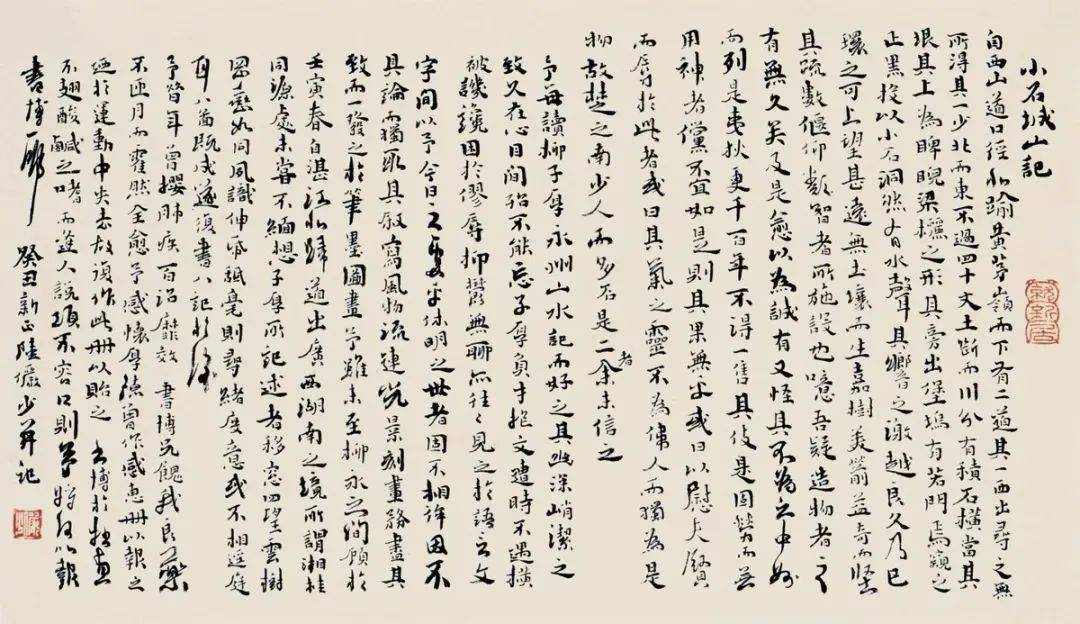 小石城山記
自西山道口徑北踰黃茅嶺而下有二道其一西出尋之無
所得其一少北而東不過四十丈土斷而川分有積石橫當其
垠其上為睥睨梁欐之形其旁出堡塢有若門焉窺之
正黑投以小石洞然有水聲其響之激越良久乃已
環之可上望甚遠無土壤而生嘉樹美箭益奇而堅
其疏數偃仰類智者所施設也噫吾疑造物者之
有無久矣及是愈以為誠有又怪其不為之中州
而列是夷狄更千百年不得一售其伎是固勞而無
用神者儻不宜如是則其果無乎或曰以慰夫賢
而辱於此者或曰其氣之靈不為偉人而獨為是
物故楚之南少人而多石是二者余未信之
予每讀柳子厚永州山水記而好之其幽深峭潔之
致久在心目間殆不能忘子厚負才推文遭時不遇橫
被譏讒困於僇辱抑鬱無聊而往往見之於語言文
字間以予今日之乎休明之世者固不相侔因不
具論而獨取其敘寫風物流連光景刻畫略盡其
致而一發之於筆墨圖畫予雖未至柳永之間顧於
壬寅春自湛江北歸道出廣西湖南之境所謂湘桂
同源處未嘗不緬想子厚所記述者移窓四望雲樹
如同夙識伸紙舐毫則尋緒度意或不相逕庭
耳八圖既成遂復書八記於後
予耳曾攖肺疾百治靡效 書博兄餽我良藥
不匝月而霍然全愈予感懷厚德曾作感惠冊以報之
於運動中失去故復作此冊以貽之 書博於拙畫
不翅酸鹹之嗜而逢人說項不容口則予將何以報
書博一 癸丑新正陸儼少并記